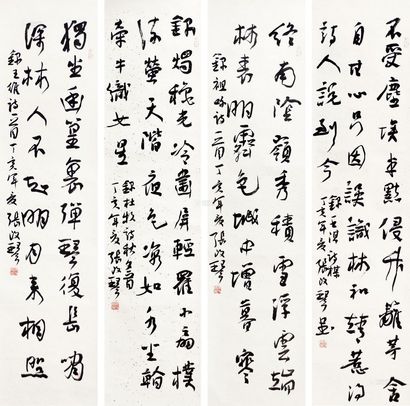 不受塵埃半點侵竹籬茅舍
自甘心只因誤識林和靖惹得
詩人說到今
錄王淇詩梅
丁亥年夏張改琴
終南陰嶺秀積雪浮雲端
林表明霽色城中增暮寒
錄祖咏詩一首丁亥年夏張改琴
銀燭秋光冷畫屏輕羅小扇撲
流螢天階夜色涼如水坐看
牽牛織女星
錄杜牧詩秋夕一首
丁亥年夏張改琴
獨坐幽篁裏彈琴復長嘯
深林人不知明月來相照
錄王維詩一首丁亥年夏張改琴